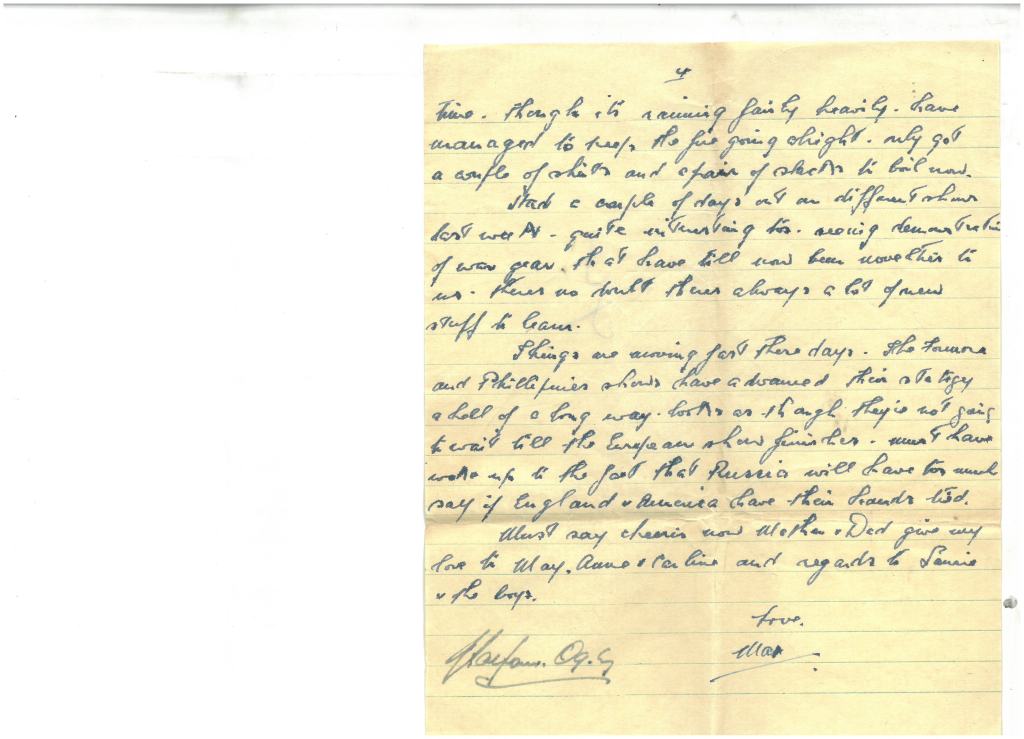 4
time. though it's raining fairly heavily. have
managed to keep the fire going alright. only got
a couple of shirts and a pair of slacks to boil now.
Had a couple of days out on different shows
last week - quite interesting too. seeing demonstration
of war gear. that have till now been novelties to
us. theres no doubt theres always a lot of new
stuff to learn.
Things are moving fast these days. The Formosa
and Phillipines shows have advanced their stategy
a hell of a long way. looks as though they're not going
to wait till the European show finishes. must have
woke up to the fact that Russia will have too much
say if England & America have their hands tied.
Must say cheerio now Mother & Dad give my
love to May. Anne & and regards to
& the boys.
Love.
Max